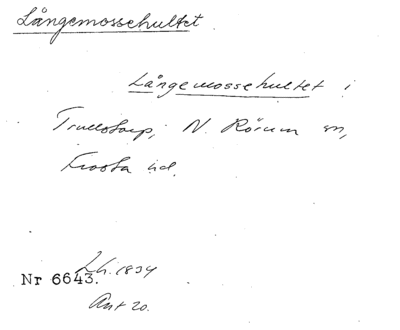 Långemossehultet
Långemossehultet i
Trulstorp, N. Rörum sn,
Frosta hd.
Lh. 1834
Nr 6643.
Ant 20.